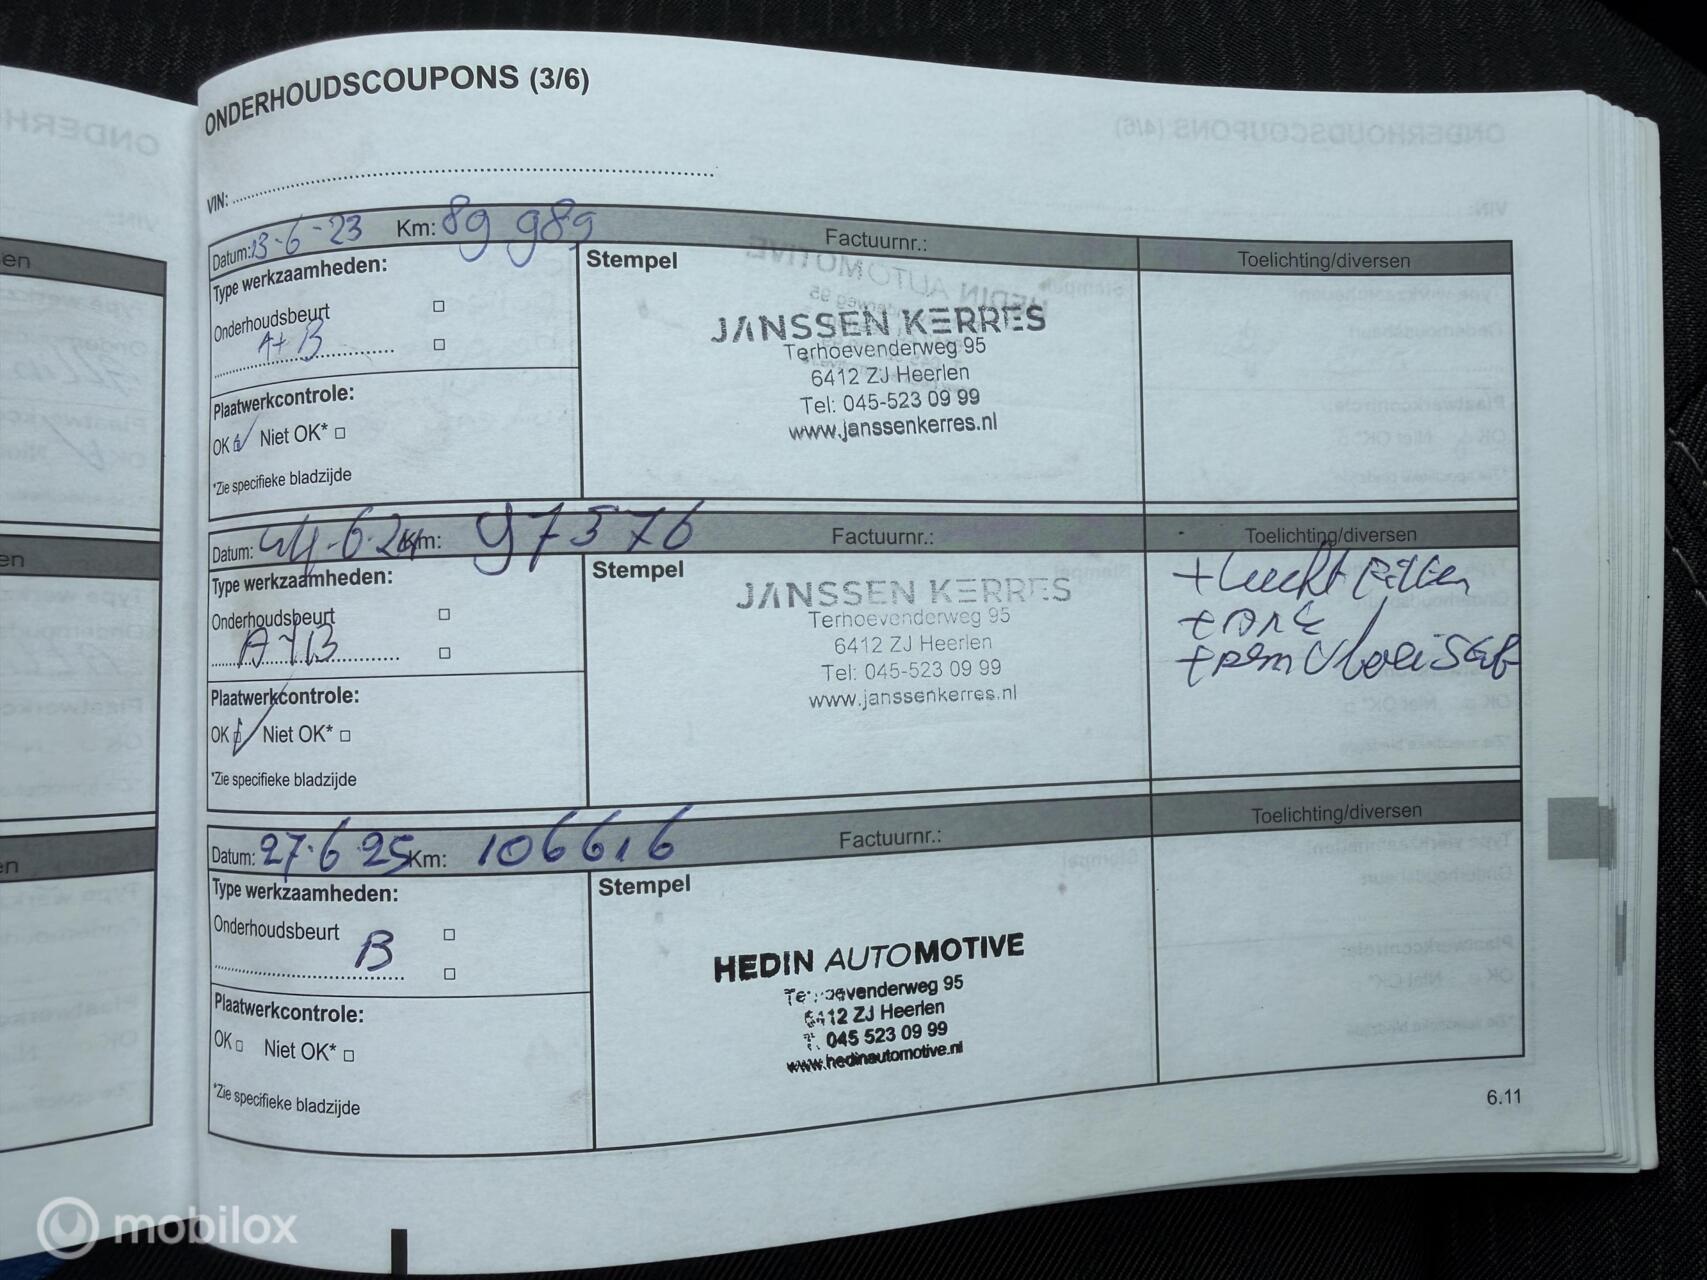 ONDERHOUDSCOUPONS (3/6)
VIN:
Datum: 13-6-23 Km: 89 989 Factuurnr.: Toelichting/diversen
Type werkzaamheden:
Stempel
Onderhoudsbeurt
A+B
JANSSEN KERRES
Terhoevenderweg 95
6412 ZJ Heerlen
Tel: 045-523 09 99
www.janssenkerres.nl
Plaatwerkcontrole:
OK Niet OK*
*Zie specifieke bladzijde
Datum: 6-24 Km: 97576 Factuurnr.: Toelichting/diversen
Type werkzaamheden:
Stempel
Onderhoudsbeurt
A+B
JANSSEN KERRES
Terhoevenderweg 95
6412 ZJ Heerlen
Tel: 045-523 09 99
www.janssenkerres.nl
+ Lucht filter
+ remvloeistof
Plaatwerkcontrole:
OK Niet OK*
*Zie specifieke bladzijde
Datum: 27-6 25 Km: 106616 Factuurnr.: Toelichting/diversen
Type werkzaamheden:
Stempel
Onderhoudsbeurt
B
HEDIN AUTOMOTIVE
Terhoevenderweg 95
6412 ZJ Heerlen
045 523 09 99
www.hedinautomotive.nl
Plaatwerkcontrole:
OK Niet OK*
*Zie specifieke bladzijde
6.11
mobilox